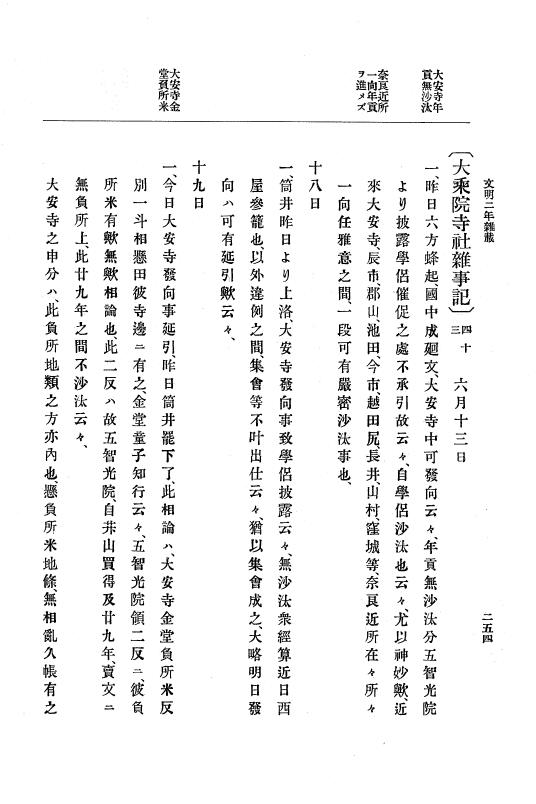 文明二年雜載
二五四
〔大乘院寺社雜事記〕四十三 六月十三日
大安寺年
貢無沙汰
一、昨日六方蜂起、國中成廻文、大安寺中可發向云々、年貢無沙汰分五智光院
より披露學侶催促之處不承引故云々、自學侶沙汰也云々、尤以神妙歟、近
奈良近所
一向年貢
ヲ進メズ
來大安寺、辰市、郡山、池田、今市、越田尻、長井、山村、窪城等、奈良近所在々所々
一向任雅意之間、一段可有嚴密沙汰事也、
十八日
一、筒井昨日より上洛、大安寺發向事致學侶披露云々、無沙汰衆經算近日西
屋參籠也、以外違例之間、集會等不叶出仕云々、猶以集會成之、大略明日發
向ハ可有延引歟云々、
十九日
大安寺金
堂負所米
一、今日大安寺發向事延引、昨日筒井罷下了、此相論ハ、大安寺金堂負所米反
別一斗相懸田彼寺邊ニ有之、金堂童子知行云々、五智光院領二反ニ、彼負
所米有歟無歟相論也、此二反ハ故五智光院、自井山買得及廿九年、賣文ニ
無負所上、此廿九年之間不沙汰云々、
大安寺之申分ハ、此負所地類之方亦內也、懸負所米地條、無相亂久帳有之